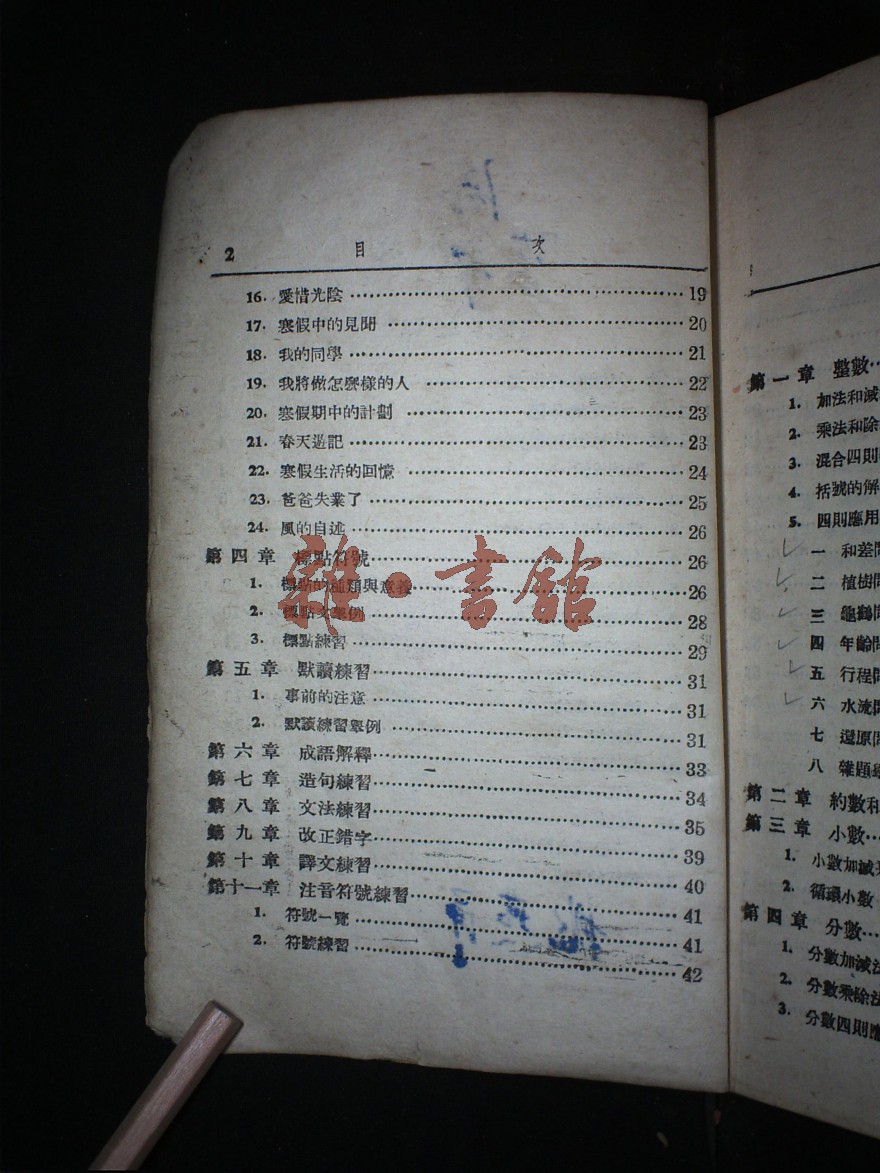 2 目 次
16. 愛惜光陰 19
17. 寒假中的見聞 20
18. 我的同學 21
19. 我將做怎麼樣的人 22
20. 寒假期中的計劃 23
21. 春天遊記 23
22. 寒假生活的回憶 24
23. 爸爸失業了 25
24. 風的自述 26
第四章 標點符號 26
1. 標點的種類與意義 26
2. 標點文舉例 28
3. 標點練習 29
第五章 默讀練習 31
1. 事前的注意 31
2. 默讀練習舉例 31
第六章 成語解釋 33
第七章 造句練習 34
第八章 文法練習 35
第九章 改正錯字 39
第十章 譯文練習 40
第十一章 注音符號練習 41
1. 符號一覽 41
2. 符號練習 42
雜·書館
第一章 整數
1. 加法和減
2. 乘法和除
3. 混合四則
4. 括號的解
5. 四則應用
一 和差問
二 植樹問
三 龜鶴問
四 年齡問
五 行程問
六 水流問
七 還原問
八 雜題
第二章 約數和
第三章 小數
1. 小數加減
2. 循環小數
第四章 分數
1. 分數加減法
2. 分數乘除法
3. 分數四則應